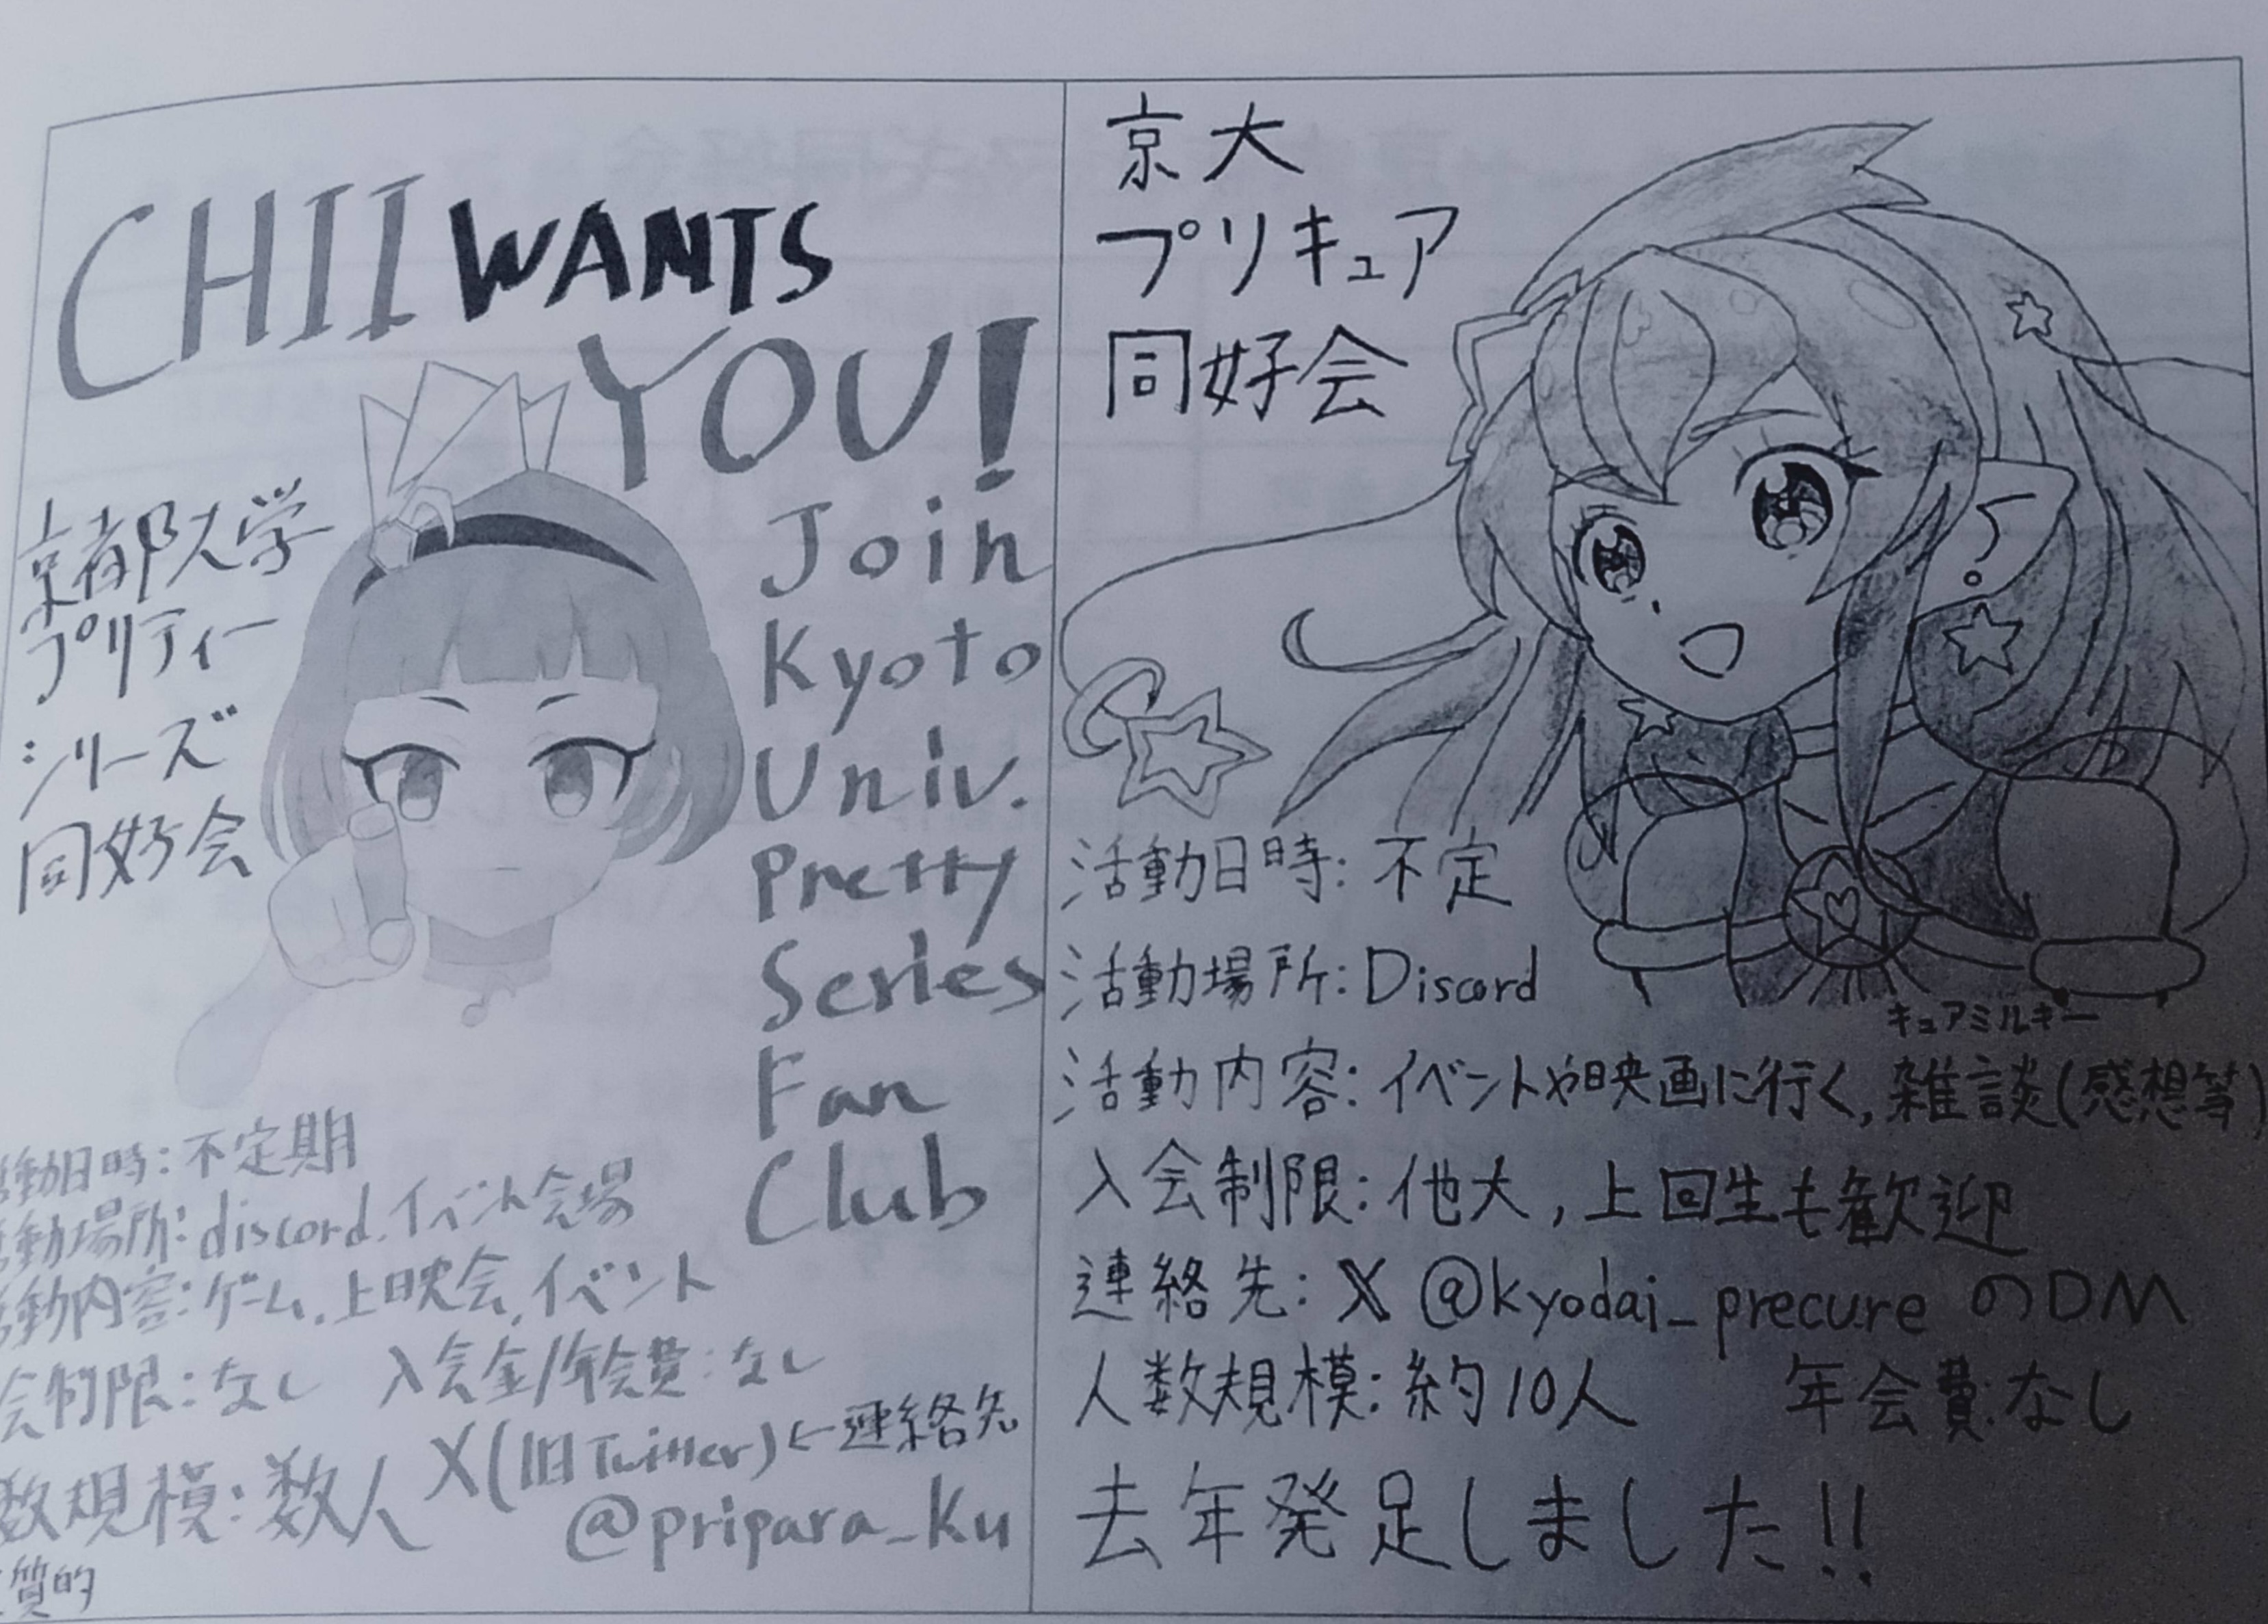 CHII WANTS
YOU!
京都大学
プリティー
シリーズ
同好会
Join
Kyoto
Univ.
Pretty
Series
Fan
Club
動日時:不定期
動場所:discord,イベント会場
動内容:ゲーム,上映会,イベント
会制限:なし 入会金/年会費:なし
数規模:数人 X(旧Twitter)←連絡先
@pripara_ku
質的
京大
プリキュア
同好会
キュアミルキー
活動日時:不定
活動場所:Discord
活動内容:イベントや映画に行く,雑談(感想等)
入会制限:他大,上回生も歓迎
連絡先:X @kyodai_precure のDM
人数規模:約10人 年会費:なし
去年発足しました!!